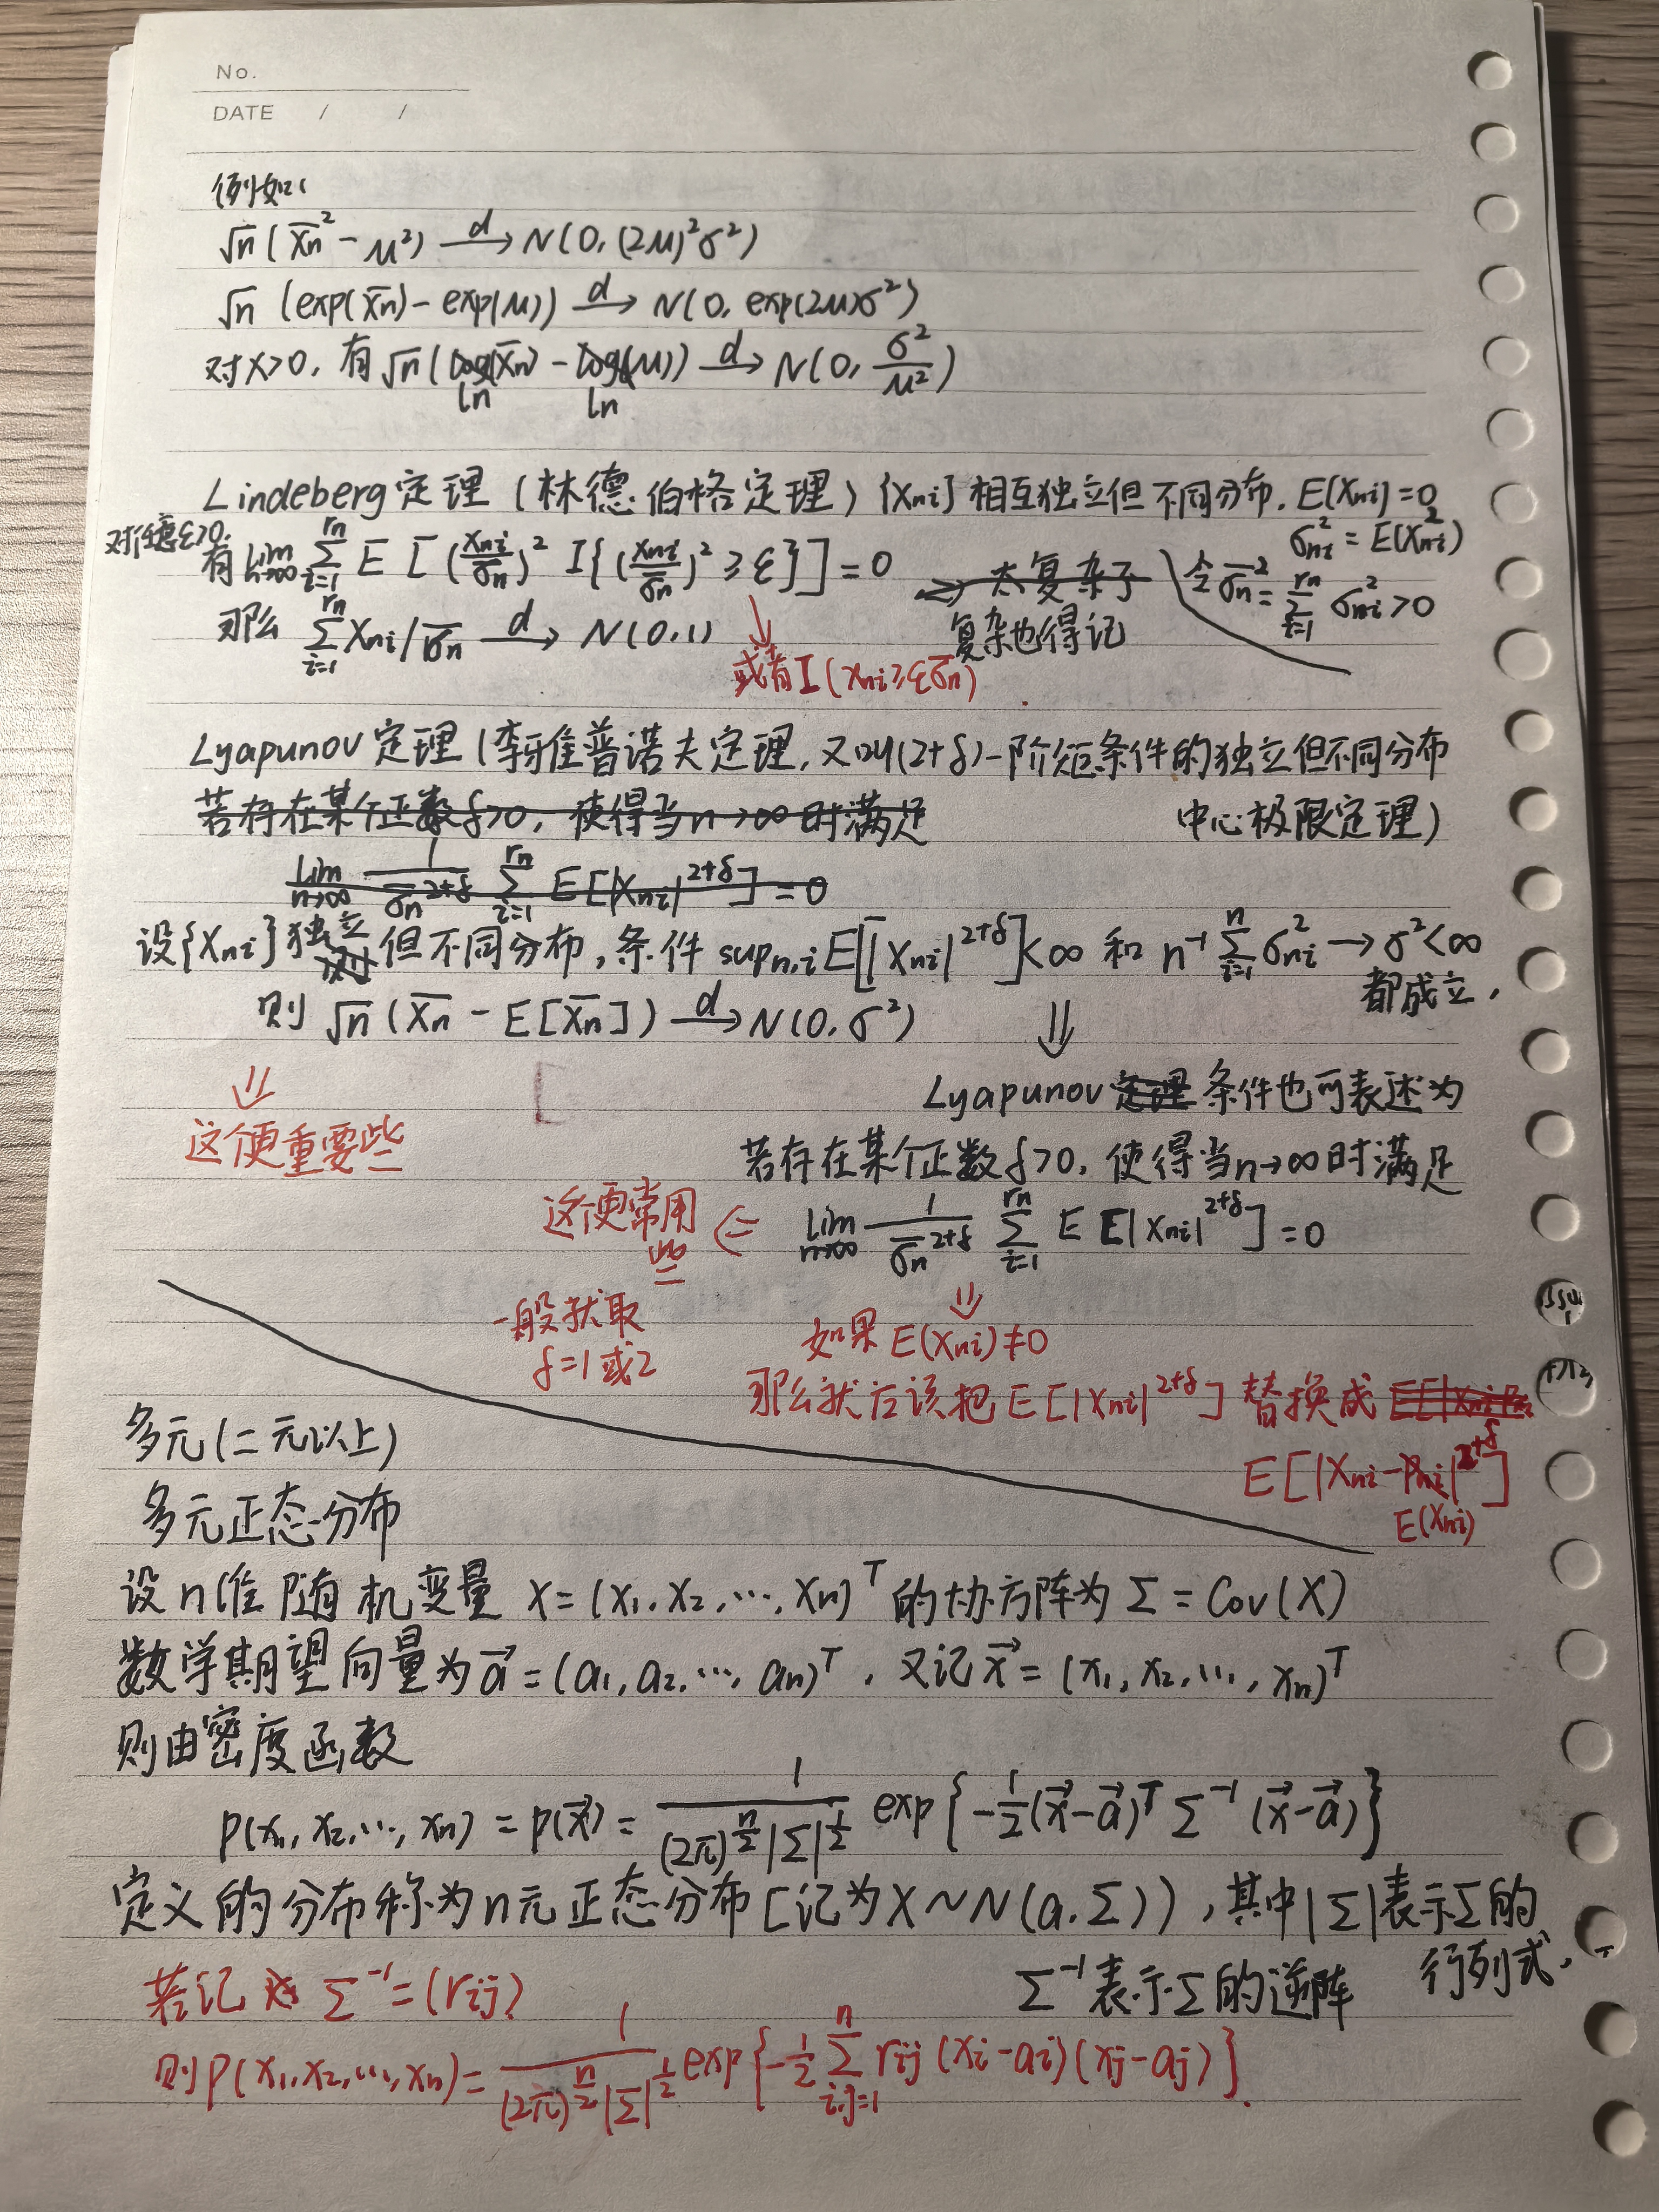 No.
DATE / /
例如:
√n (X̄n² - μ²) →d N(0, (2μ)²σ²)
√n (exp(X̄n) - exp(μ)) →d N(0, exp(2μ)σ²)
对X>0, 有 √n (log(X̄n) - log(μ)) →d N(0, σ²/μ²)
ln ln
Lindeberg定理 (林德伯格定理) {Xni} 相互独立但不同分布, E(Xni)=0
σni² = E(Xni²)
对任意ε>0,
有 lim n→∞ Σ i=1 rn E [ (Xni/σ̄n)² I{(Xni/σ̄n)² ≥ ε} ] = 0 => 太复杂了 令 σ̄n² = Σ i=1 rn σni² > 0
复杂也得记
那么 Σ i=1 rn Xni/σ̄n →d N(0,1)
或者 I(Xni≥εσ̄n)
Lyapunov定理 (李雅普诺夫定理, 又叫(2+δ)-阶矩条件的独立但不同分布
中心极限定理)
若存在某个正数δ>0, 使得当n→∞时满足
lim n→∞ 1/σ̄n^(2+δ) Σ i=1 rn E[|Xni|^(2+δ)] = 0
设{Xni} 独立 但不同分布, 条件 sup n,i E[|Xni|^(2+δ)]<∞ 和 n⁻¹ Σ i=1 n σni² → σ²<∞
都成立,
则 √n (X̄n - E[X̄n]) →d N(0, σ²) ⇓
⇓
这个更重要些
Lyapunov 定理 条件也可表述为
若存在某个正数δ>0, 使得当n→∞时满足
这更常用些 <= lim n→∞ 1/σ̄n^(2+δ) Σ i=1 rn E E|Xni|^(2+δ)] = 0
一般就取
δ=1或2
⇓
如果 E(Xni)≠0
那么就应该把 E[|Xni|^(2+δ)] 替换成
E[|Xni-μni|^(2+δ)]
E(Xni)
多元(二元以上)
多元正态分布
设n维随机变量 X=(X₁, X₂, ⋯, Xn)ᵀ 的协方阵为 Σ = Cov(X)
数学期望向量为 a⃗=(a₁, a₂, ⋯, an)ᵀ, 又记 x⃗ = (x₁, x₂, ⋯, xn)ᵀ
则由密度函数
p(x₁, x₂, ⋯, xn) = p(x⃗) = 1/((2π)^(n/2) |Σ|^(1/2)) exp{-1/2 (x⃗-a⃗)ᵀ Σ⁻¹ (x⃗-a⃗)}
定义的分布称为n元正态分布[记为X~N(a, Σ)), 其中|Σ|表示Σ的
行列式,
Σ⁻¹表示Σ的逆阵
若记 Σ⁻¹=(rij)
则p(x₁, x₂, ⋯, xn)= 1/((2π)^(n/2) |Σ|^(1/2)) exp{-1/2 Σ i,j=1 n rij (xi-ai)(xj-aj)}.